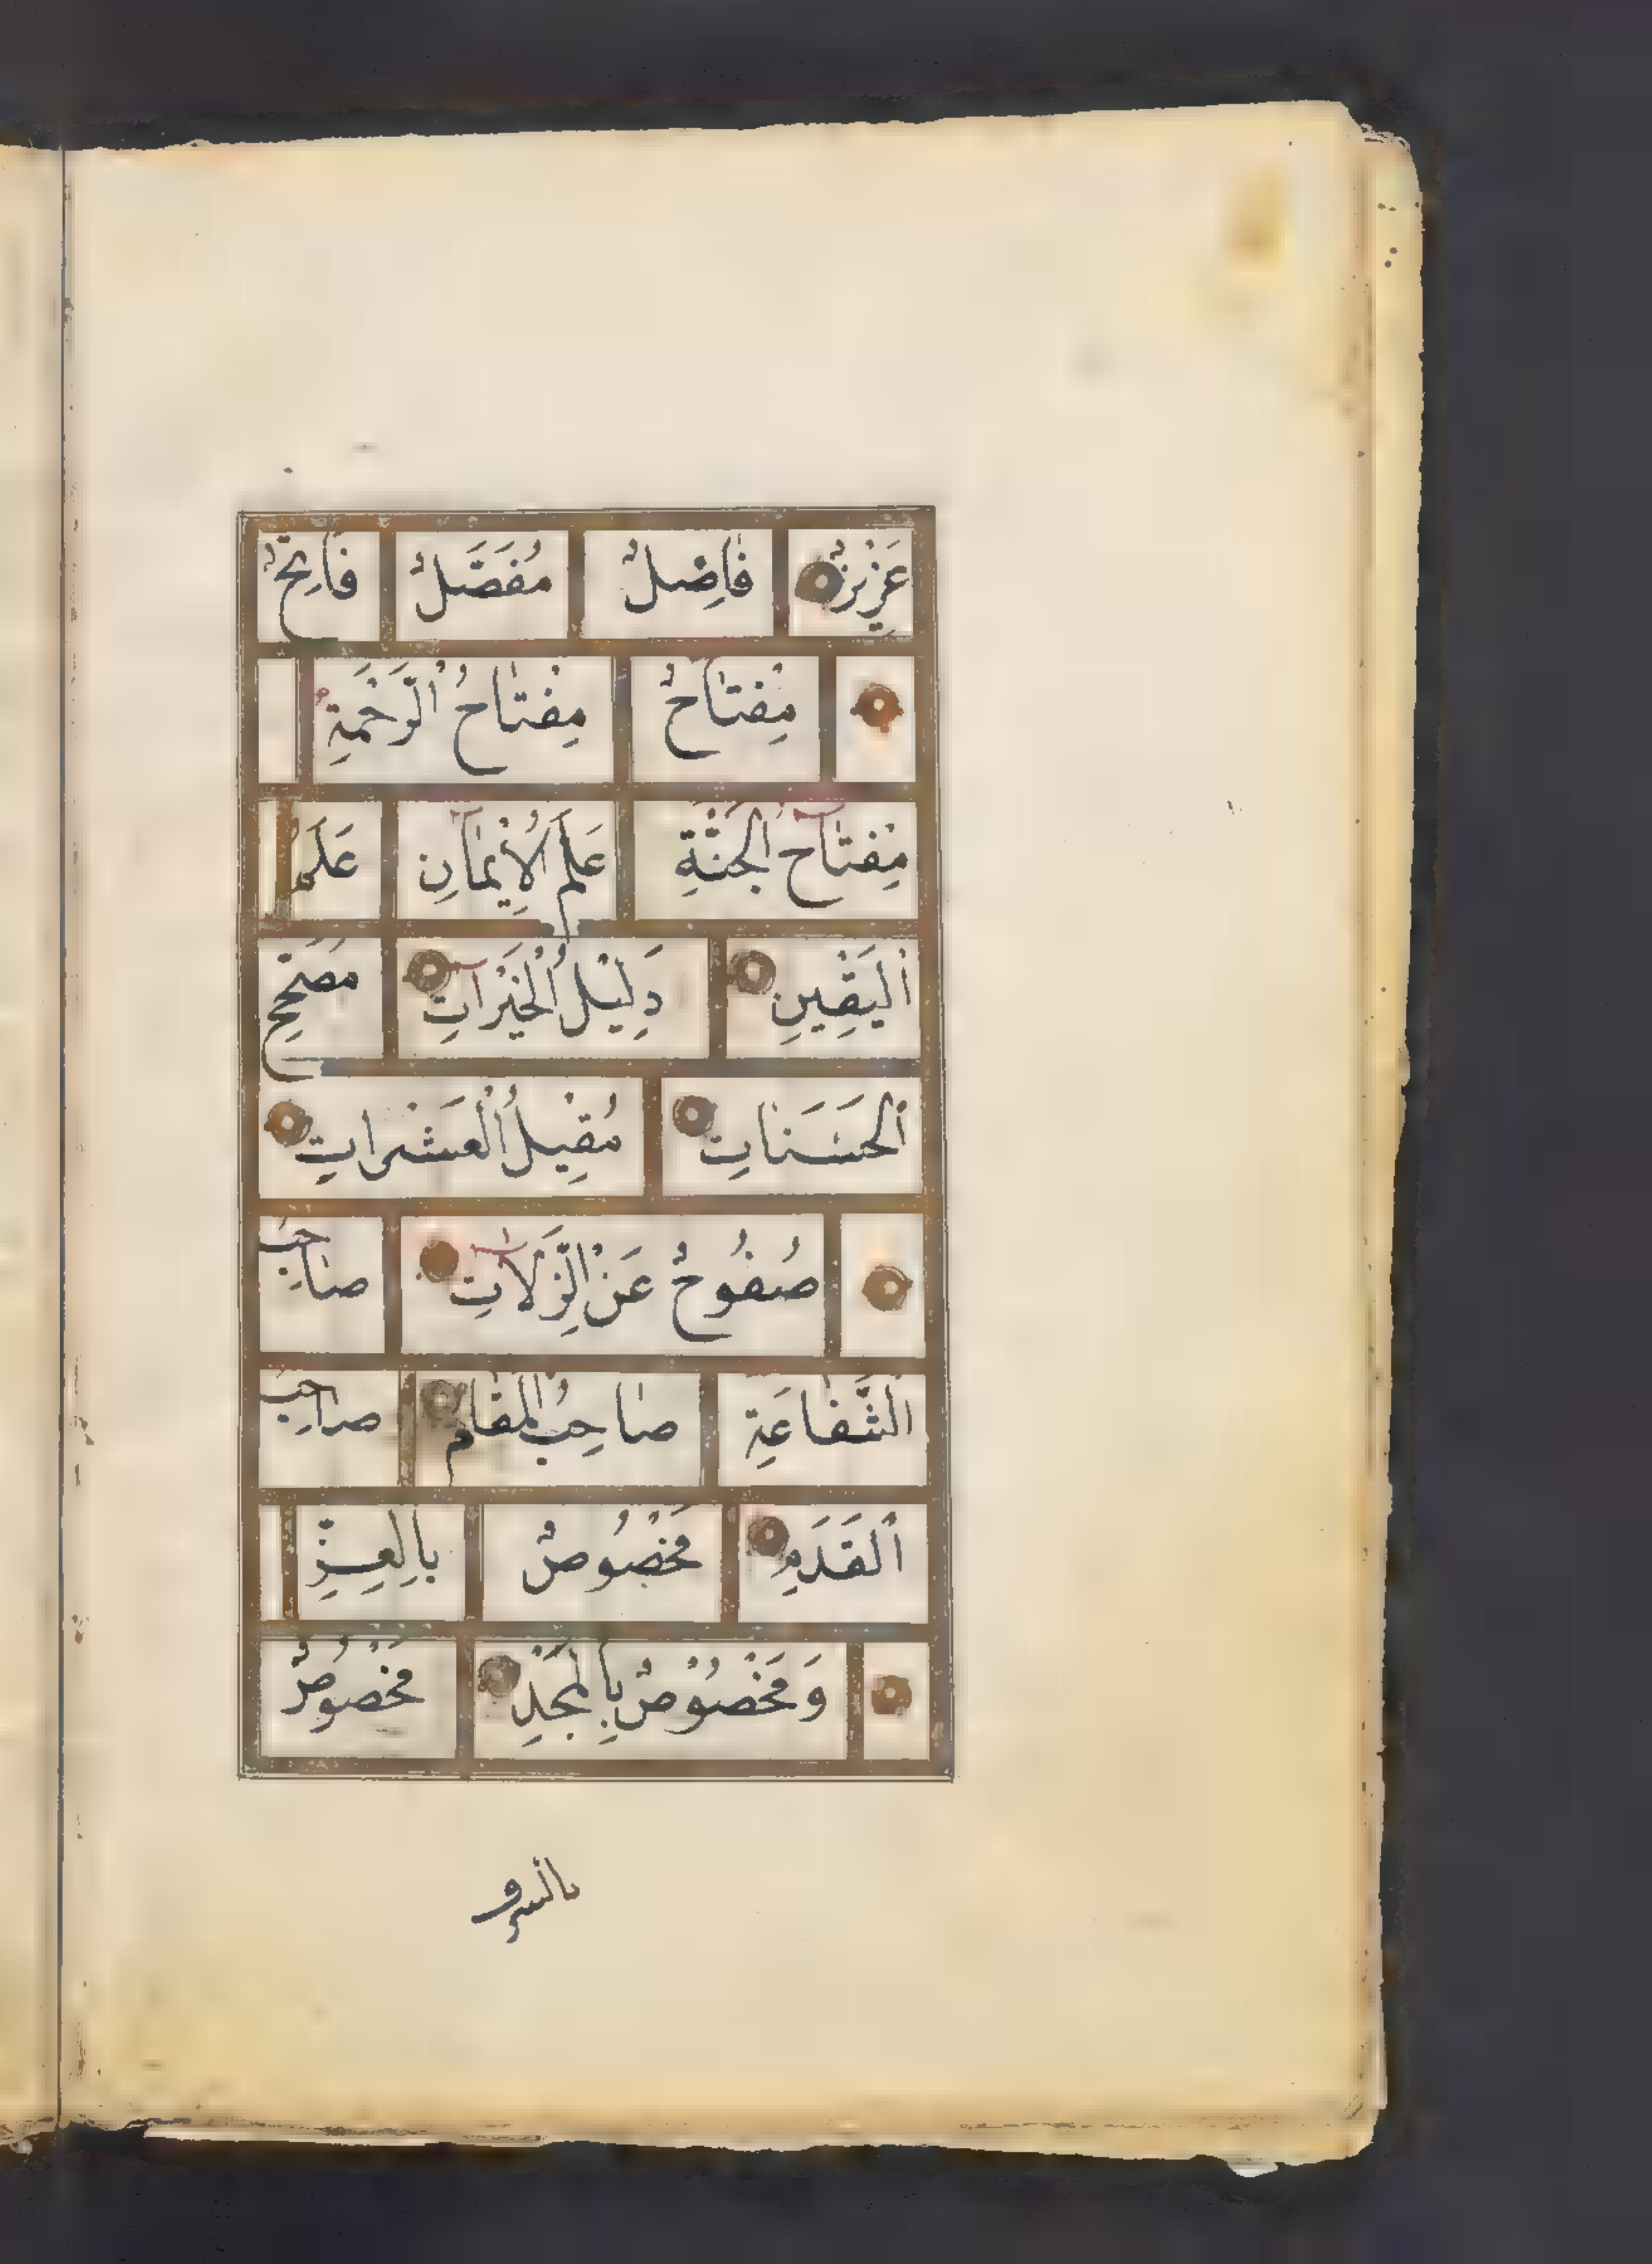 عَزِيْزٌ فَاضِلٌ مُفَضَّلٌ فَاتِحٌ
مِفْتَاحٌ مِفْتَاحُ الرَّحْمَةِ
مِفْتَاحُ الْجَنَّةِ عَلَمُ الْاِيْمَانِ عَلَمُ
الْيَقِيْنِ دَلِيْلُ الْخَيْرَاتِ مُصَحِّحُ
الْحَسَنَاتِ مُقِيْلُ الْعَثَرَاتِ
صَفُوْحٌ عَنِ الزَّلَّاتِ صَاحِبُ
الشَّفَاعَةِ صَاحِبُ الْمَقَامِ صَاحِبُ
الْقَدَمِ مَخْصُوْصٌ بِالْعِزِّ
وَمَخْصُوْصٌ بِالْمَجْدِ مَخْصُوْصٌ
بالشرف